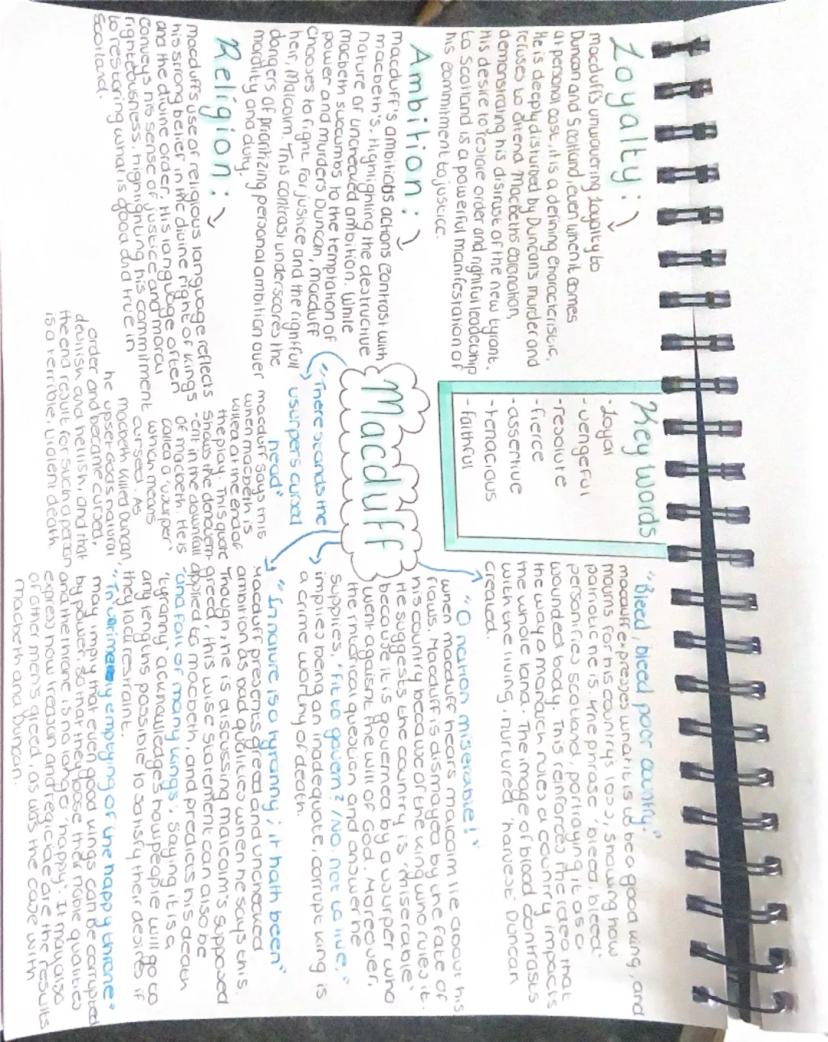 Loyalty:
macduff's unwavering loyalty to
Duncan and Scotland, even when it comes
at personal cost, it is a defining characteristic.
He is deeply disturbed by Duncan's murder and
refuses to attend Macbeth's coronation,
demonstrating his distrust of the new tyrant.
His desire to restore order and rightful leadership
to Scotland is a powerful manifestation of
his commitment to justice.
Ambition:
macduff's ambitious actions contrast with
macbeth's. Highlighting the destructive
nature of unchecked ambition. While
macbeth succumbs to the temptation of
power and murders Duncan, macduff
chooses to fight for justice and the rightful
heir, Malcolm. This contrast underscores the
dangers of prioritizing personal ambition over
morality and duty.
Religion:
macduff's use of religious language reflects
his strong belief in the divine right of kings
and the divine order. His language often
conveys his sense of justice and moral
righteousness, highlighting his commitment
to restoring what is good and true in
Scotland.
Key words
-Loyal
-vengeful
-resolute
-fierce
-assertive
-tenacious
-faithful
Macduff
"There stands the
usurpers cursed
head"
macduff says this
when macbeth is
killed at the end of
the play. This quote
shows the denoem-
-ent in the downfall
of macbeth. He is
called a 'usurper'
which means
cursed. As
macbeth killed Duncan,
he upset God's natural
order and became cursed,
devilish and hellish, and that
the end result for such a person
is a terrible, violent death.
"Bleed, bleed poor country."
macduff expresses what it is to be a good king, and
mourns for his countrys loss, showing how
patriotic he is. The phrase 'bleed, bleed'
personifies scotland, portraying it as a
wounded body. This reinforces the idea that
the way a monarch rules a country impacts
the whole land. The image of blood contrasts
with the living, nurtured 'harvest' Duncan
created.
"O nation miserable!"
when macduff hears malcolm lie about his
flaws. Macduff is dismayed by the fate of
his country because of the king who rules it.
He suggests the country is 'miserable'
because it is governed by a usurper who
went against the will of God. Moreover,
the rhetorical question and answer he
supplies, "fit to govern? / No, not to live,"
implies being an inadequate, corrupt king is
a crime worthy of death.
"In nature is a tyranny; it hath been"
Macduff presents greed and unchecked
ambition as bad qualities when he says this.
Though, he is discussing malcolm's supposed
greed, this wise statement can also be
applied to macbeth, and predicts his death
'and fall of many kings'. Saying it is a
'tyranny' acknowledges how people will go to
any lengths possible to satisfy their desires if
they lack restraint.
"Th' untimely emptying of the happy throne"
may imply that even good kings can be corrupted
by power, so that they loose their noble qualities
and the throne is no longer 'happy'. It may also
express how treason and regicide are the results
of other men's greed, as was the case with
Macbeth and Duncan.